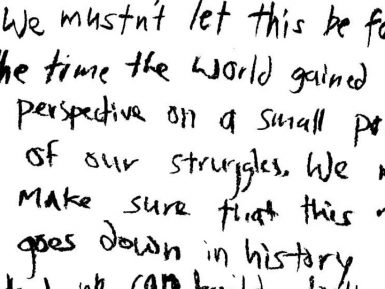 We mustn't let this be fo
he time the world gained
perspective on a small po
of our struggles. We
Make sure that this
goes down in history
can build